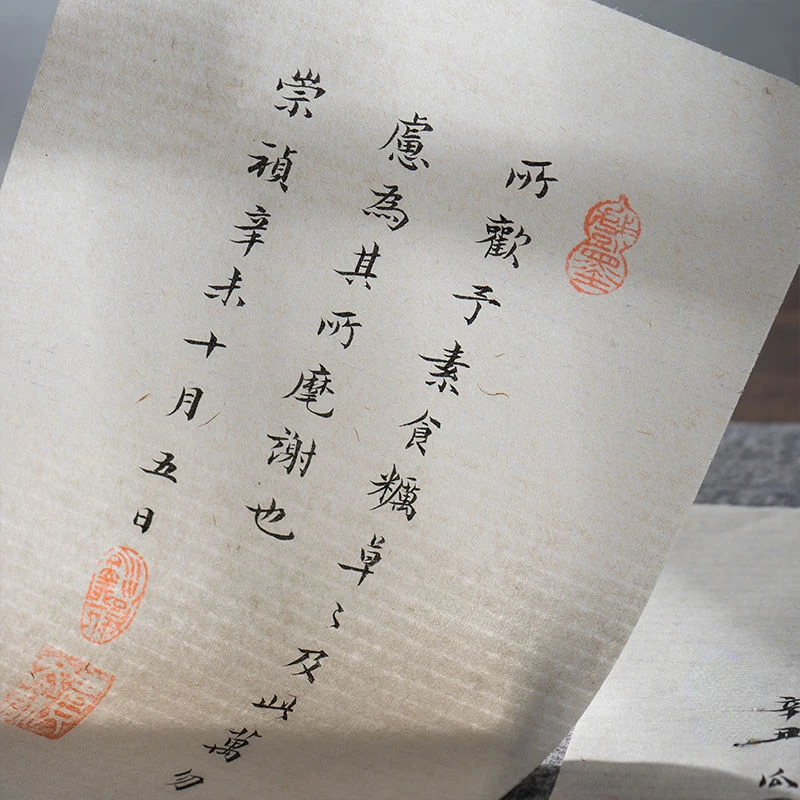 所歡予素食糲草〻及此萬勿
慮為其所麾謝也
崇禎辛未十月五日